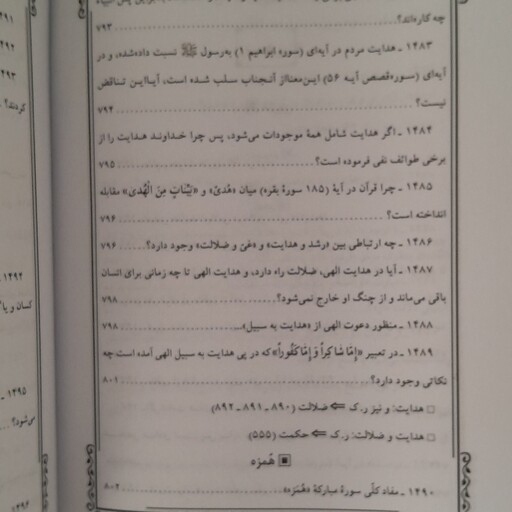 چه کاره‌اند؟ ........ ۷۹۳
۱۴۸۳ ـ هدایت مردم در آیه‌ای (سوره ابراهیم ۱) به‌رسول ﷺ نسبت داده‌شده، و در
آیه‌ای (سوره‌قصص آیه ۵۶) این‌معنااز آنجناب سلب شده است، آیااین تناقض
نیست؟ ........ ۷۹۴
۱۴۸۴ ـ اگر هدایت شامل همهٔ موجودات می‌شود، پس چرا خداوند هدایت را از
برخی طوائف نفی فرموده است؟ ........ ۷۹۵
۱۴۸۵ ـ چرا قرآن در آیهٔ (۱۸۵ سورهٔ بقره) میان «هُدیً» و «بَیِّنَاتٍ مِنَ الْهُدی» مقابله
انداخته است؟ ........ ۷۹۶
۱۴۸۶ ـ چه ارتباطی بین «رشد و هدایت» و«غیّ و ضلالت» وجود دارد؟ ........ ۷۹۶
۱۴۸۷ ـ آیا در هدایت الهی، ضلالت راه دارد، و هدایت الهی تا چه زمانی برای انسان
باقی می‌ماند و از چنگ او خارج نمی‌شود؟ ........ ۷۹۸
۱۴۸۸ ـ منظور دعوت الهی از «هدایت به سبیل» ........ ۷۹۸
۱۴۸۹ ـ در تعبیر «إِمَّا شَاكِراً وَ إِمَّا كَفُوراً» که در پی هدایت به سبیل الهی آمده است چه
نکاتی وجود دارد؟ ........ ۸۰۱
□ هدایت: و نیز ر.ک ⇐ ضلالت (۸۹۰ ـ ۸۹۱ ـ ۸۹۲)
□ هدایت و ضلالت: ر.ک ⇐ حکمت (۵۵۵)
▣ هُمزه
۱۴۹۰ ـ مفاد کلّی سورهٔ مبارکهٔ «هُمَزه» ........ ۸۰۲
۱۴۹۱
۱۴۹۲
۱۴۹۳
کردند؟
۱۴۹۴
کسان و یا
۱۴۹۵ ـ
می‌شود؟
۱۴۹۶